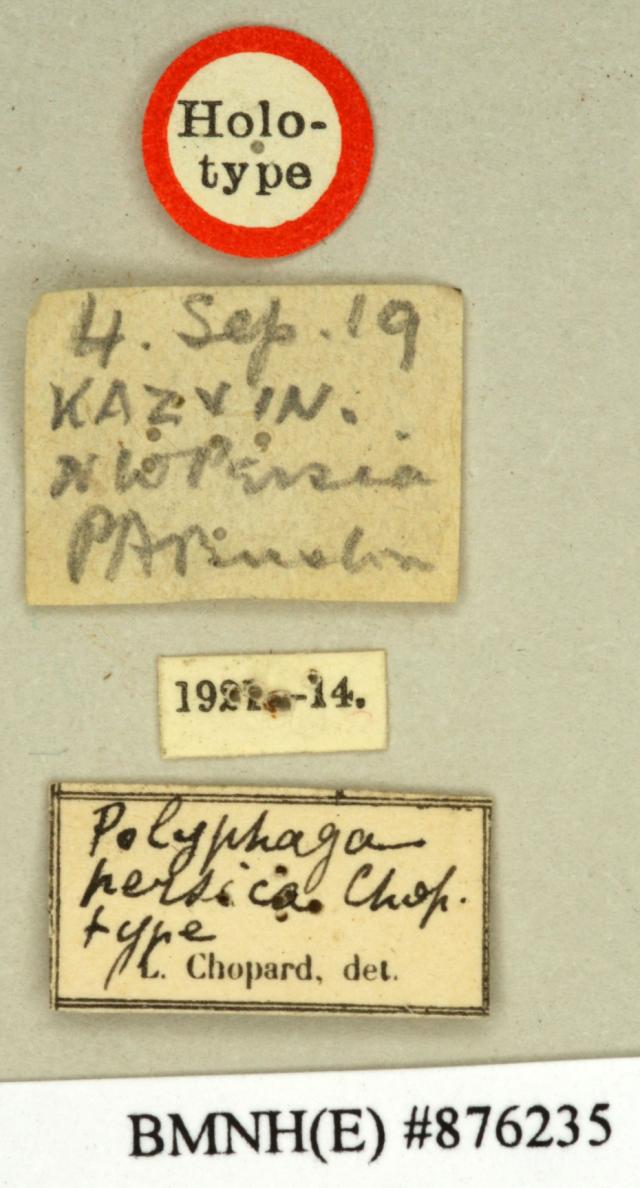 Holo-
type
4. Sep. 19
KAZVIN.
NW Persia
PABuxton
1921-14.
Polyphaga
persica Chop.
type
L. Chopard, det.
BMNH(E) #876235